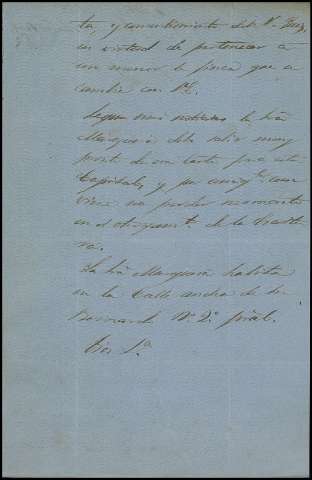 ta, y consentimiento del Sr. Juez,
en virtud de pertenecer á
un menor la finca que se
cambia con V.E.
Segun mis noticias la Sra
Marquesa debe salir muy
pronto de esa Corte para esta
Capital, y por consigte con
viene no perder momento
en el otorgamto de la Escritu
ra.
La Sra Marquesa habita
en la Calle ancha de Sn
Bernardo No. 2o pral.